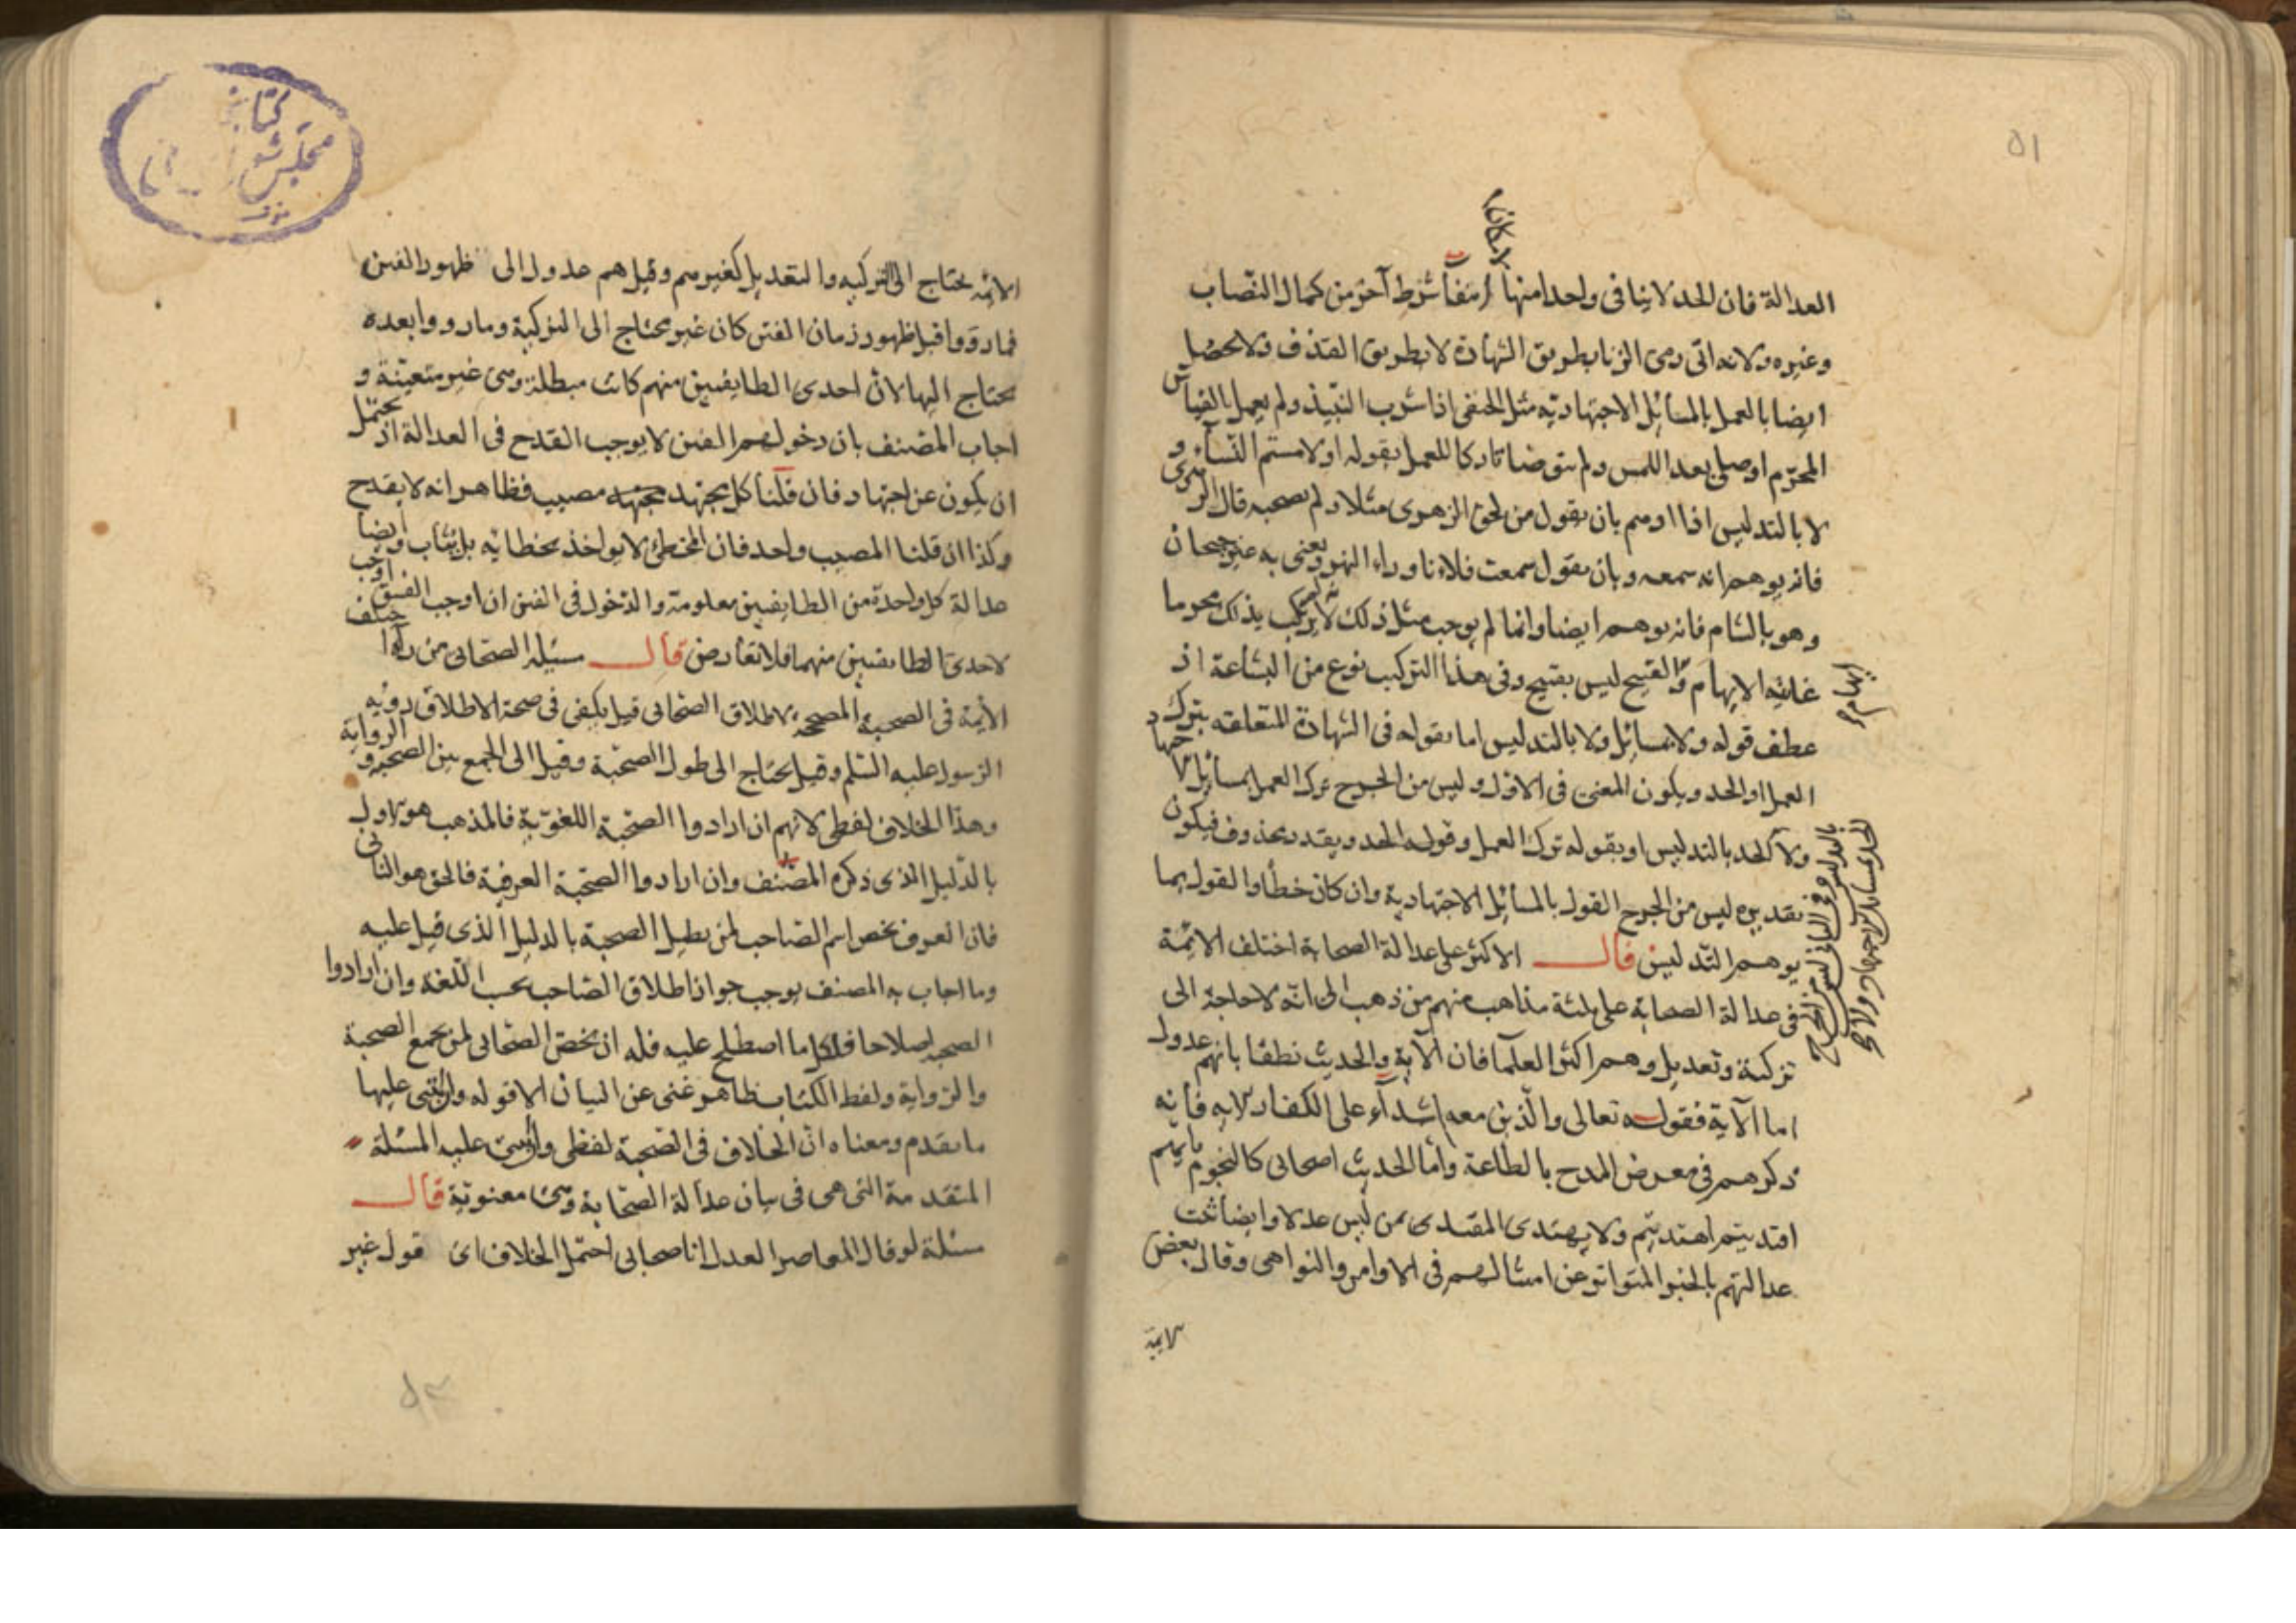 ٥١
لامكان
العدالة فان الحد لا ينافى واحدا منها انتفآ شرط آخر من كمال النصاب
وغيره ولانه اتى رمى الزنا بطريق الشهادة لا بطريق القذف ولا يحصل
ايضا بالعمل بالمسائل الاجتهادية مثل الحنفى اذا شرب النبيذ ولم يعمل بالقياس
المحرم او صلى بعد اللمس ولم يتوضا تاركا للعمل بقوله او لامستم النسآء و
لا بالتدليس اذا اوهم بان يقول من لحق الزهوى مثلا ولم يصحبه قال الزهرى
فانه يوهم انه سمعه وبان يقول سمعت فلانا وراء النهر ويعنى به غير جيحان
وهو بالشام فانه يوهم ايضا وانما لم يوجب مثل ذلك لانه لم يرتكب بذلك محرما
غايته الايهام والقبيح ليس بقبيح وفى هذا التركيب نوع من البشاعة اذ
ايهام
عطف قوله ولا بمسائل ولا بالتدليس اما بقوله فى الشهادة المتعلقه بترك
العمل او الحد ويكون المعنى فى الاول وليس من الجرح ترك العمل بمسائل الاجتهاد
ولا كالحد بالتدليس او بقوله ترك العمل وقوله الحد ويقدر محذوف فيكون
تقديره ليس من الجرح القول بالمسائل الاجتهادية وان كان خطأ والقول بما
بالتدليس وفى الثانى ليس من الجرح
الحد بمسائل الاجتهاد ولا
يوهم التدليس قال الاكثر على عدالة الصحابة اختلف الائمة
فى عدالة الصحابة على ثلثة مذاهب منهم من ذهب الى انه لا حاجة الى
تزكية وتعديل وهم اكثر العلمآ فان الآية والحديث نطقا بانهم عدول
اما الآية فقوله تعالى والذين معه اشدآء على الكفار الايه فانه
ذكرهم فى معرض المدح بالطاعة واما الحديث اصحابى كالنجوم بايهم
اقتديتم اهتديتم ولا يهتدى المقتدى بمن ليس عدلا وايضا ثبت
عدالتهم بالخبر المتواتر عن امتثالهم فى الاوامر والنواهى وقال بعض
الايمة
كتابخانه
مجلس شو
الائمه يحتاج الى التزكيه والتعديل كغيرهم وقيل هم عدول الى ظهور الفتن
فما رووا قبل ظهور زمان الفتن كان غير محتاج الى التزكية وما رووا بعده
محتاج اليها لان احدى الطايفتين منهم كانت مبطلة وهى غير متعينة و
اجاب المصنف بان دخولهم الفتن لا يوجب القدح فى العدالة اذ يحتمل
ان يكون عن اجتهاد فان قلنا كل مجتهد مصيب فظاهر انه لا يقدح
وكذا ان قلنا المصيب واحد فان المخطئ لا يواخذ بخطايه بل يثاب وايضا
عدالة كل واحدة من الطايفتين معلومة والدخول فى الفتن ان اوجب الفسق اوجب
لاحدى الطايفتين منهما فلا تعارض قال مسئله الصحابى من رآه اختلف
الأيمة فى الصحبة المصححة لاطلاق الصحابى قيل يكفى فى صحة الاطلاق رؤيه
الرسول عليه السلم وقيل يحتاج الى طول الصحبة وقيل الى الجمع بين الصحبة والرواية
وهذا الخلاف لفظى لانهم ان ارادوا الصحبة اللغوية فالمذهب هو الاول
بالدليل الذى ذكره المصنف وان ارادوا الصحبة العرفية فالحق هو الثانى
فان العرف يخص اسم الصاحب لمن يطيل الصحبة بالدليل الذى قيل عليه
وما اجاب به المصنف يوجب جواز اطلاق الصاحب بحسب اللغه وان ارادوا
الصحبه اصطلاحا فلكل ما اصطلح عليه فله ان يخص الصحابى لمن يجمع الصحبة
والرواية ولفظ الكتاب ظاهر غنى عن البيان الا قوله وابتنى عليها
ما تقدم ومعناه ان الخلاف فى الصحبة لفظى وابتنى عليه المسئلة
المتقدمة التى هى فى بيان عدالة الصحابة وهى معنوية قال
مسئلة لو قال المعاصر العدل انا صحابى احتمل الخلاف اى قول غير